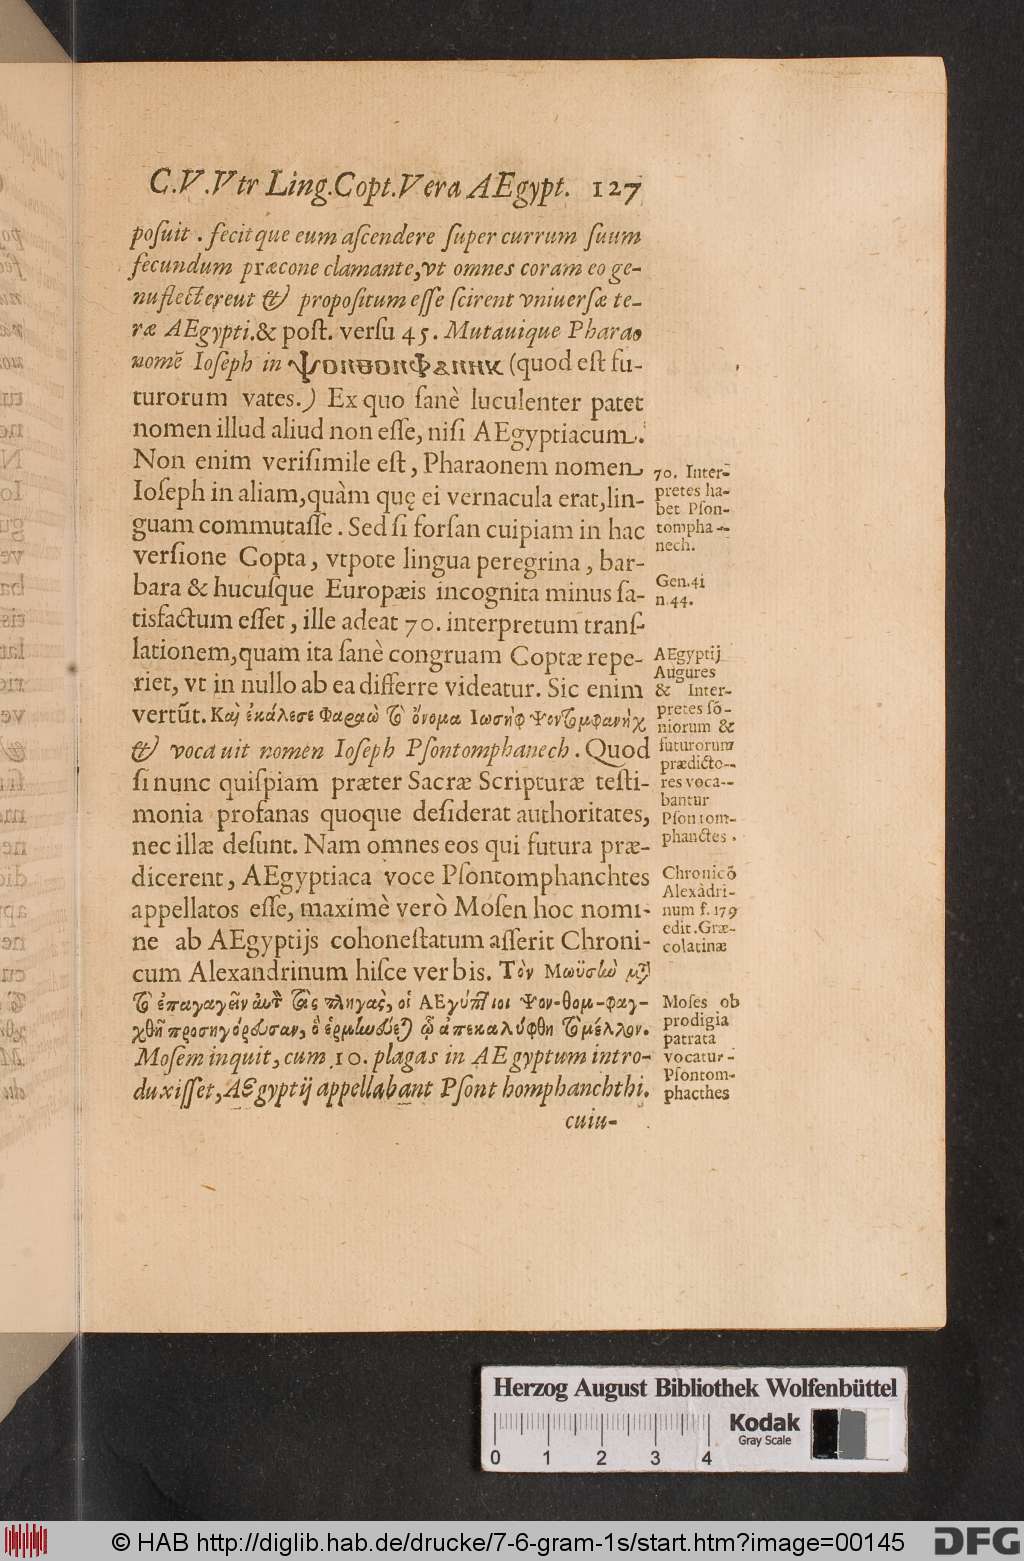 C.V.Vtr Ling.Copt.Vera AEgypt. 127
poſuit . fecitque eum aſcendere ſuper currum ſuum
ſecundum præcone clamante,vt omnes coram eo ge-
nuflectereut & propoſitum eſſe ſcirent vniuerſæ te-
ræ AEgypti.& poſt. verſu 45. Mutauique Pharao
nomē Ioſeph in Ⲯⲟⲛⲑⲟⲙⲫⲁⲛⲏⲕ (quod eſt fu-
turorum vates.) Ex quo ſanè luculenter patet
nomen illud aliud non eſſe, niſi AEgyptiacum.
Non enim veriſimile eſt, Pharaonem nomen
Ioſeph in aliam,quàm quę ei vernacula erat,lin-
guam commutaſſe. Sed ſi forſan cuipiam in hac
verſione Copta, vtpote lingua peregrina, bar-
bara & hucuſque Europæis incognita minus ſa-
tisfactum eſſet, ille adeat 70. interpretum tranſ-
lationem,quam ita ſanè congruam Coptæ repe-
riet, vt in nullo ab ea differre videatur. Sic enim
vertūt. Καὶ ἐκάλεσε Φαραὼ τὸ ὄνομα Ιωσὴφ Ψοντομφανὴχ
& vocauit nomen Ioſeph Pſontomphanech. Quod
ſi nunc quiſpiam præter Sacræ Scripturæ teſti-
monia profanas quoque deſiderat authoritates,
nec illæ deſunt. Nam omnes eos qui futura præ-
dicerent, AEgyptiaca voce Pſontomphanchtes
appellatos eſſe, maximè verò Moſen hoc nomi-
ne ab AEgyptijs cohoneſtatum aſſerit Chroni-
cum Alexandrinum hiſce verbis. Τὸν Μωϋσἰὼ μετὰ
τὸ ἐπαγαγεῖν αὐτὸν τὰς πληγὰς, οἱ ΑΕγύπτιοι Ψον-θομ-φαγ-
χθῆ προσηγόρευσαν, ὃ ἑρμηνεύεται ᾧ ἀπεκαλύφθη τὸ μέλλον.
Moſem inquit, cum 10. plagas in AEgyptum intro-
duxiſſet, AEgyptij appellabant Pſont homphanchthi.
cuiu-
70. Inter-
pretes ha-
bet Pſon-
tompha-
nech.
Gen.41
n.44.
AEgyptij
Augures
& Inter-
pretes ſō-
niorum &
futurorum
prædicto-
res voca-
bantur
Pſontom-
phanctes.
Chronicō
Alexādri-
num f.179
edit.Græ-
colatinæ
Moſes ob
prodigia
patrata
vocatur
Pſontom-
phacthes
Herzog August Bibliothek Wolfenbüttel
Kodak
Gray Scale
0 1 2 3 4
© HAB http://diglib.hab.de/drucke/7-6-gram-1s/start.htm?image=00145
DFG